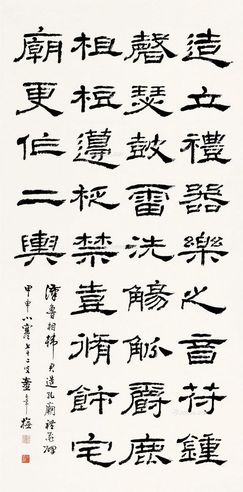 造立禮器樂之音苻鍾
磬瑟鼓雷洗觴觚爵鹿
柤梪籩柉禁壺脩飾宅
廟更作二輿
漢魯相韓君造孔廟禮器碑
甲申小寒七十二叟童